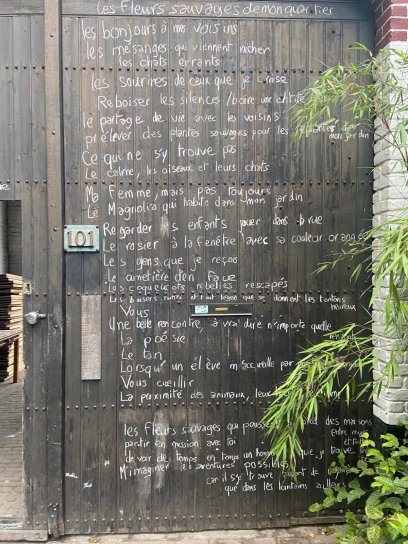 les fleurs sauvages de mon quartier
les bonjours à mes voisins
les mésanges qui viennent nicher
les chats errants
les sourires de ceux que je croise
Reboiser les silences / boire une
le partage de vie avec les voisins
prélever des plantes sauvages pour les replanter dans
mon jardin
Ce qui ne s'y trouve pas
Le calme, les oiseaux et leurs chats
Ma femme, mais pas toujours
Le Magnolia qui habite dans mon jardin
Regarder les enfants jouer dans la rue
Le rosier à la fenêtre avec sa couleur orangé
101
Les gens que je reçois
Le cimetière d'en face
Les coquelicots rebelles rescapés
Les baisers furtifs et tout légers que se donnent les
heureux
Vous
Une belle rencontre, à vrai dire n'importe quelle
La poésie
Le tan
Lorsqu'un élève m'accueille par
Vous cueillir
La proximité des animaux, leur
les fleurs sauvages qui pousse des maisons
entre murs
partir en mission avec toi
de voir de temps en temps un que je trouve
M'imaginer les aventures possibles
car il s'y trouve autant de
que dans les lointains ailleurs